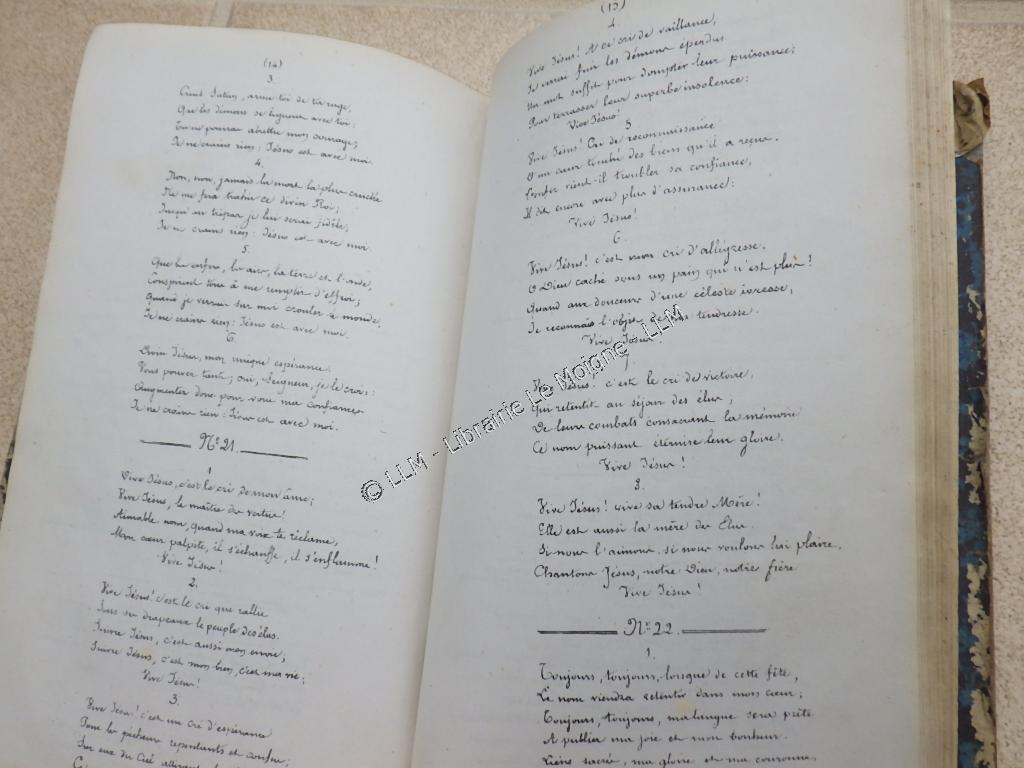 (14)
3.
Cruel Satan, arme toi de ta rage,
Que les démons se liguent avec toi;
Tu ne pourras abattre mon courage;
Je ne crains rien; Jésus est avec moi.
4.
Non, non, jamais la mort la plus cruelle
Ne me fera trahir ce divin Roi;
Jusqu'au trépas je lui serai fidèle,
Je ne crains rien: Jésus est avec moi.
5.
Que les enfers, les airs, la terre et l'onde,
Conspirent tous à me remplir d'effroi;
Quand je verrais sur moi crouler le monde,
Je ne crains rien: Jésus est avec moi.
6.
Divin Jésus, mon unique espérance
Vous pouvez tout; oui, Seigneur, je le crois:
Augmentez donc pour vous ma confiance
Je ne crains rien: Jésus est avec moi.
N° 21
1
Vive Jésus, c'est le cri de mon âme;
Vive Jésus, le maître des vertus!
Aimable nom, quand ma voix te réclame,
Mon cœur palpite, il s'échauffe, il s'enflamme!
Vive Jésus!
2.
Vive Jésus! c'est le cri qui rallie
Sous ses drapeaux le peuple des élus.
Suivre Jésus, c'est aussi mon envie,
Suivre Jésus, c'est mon bien, c'est ma vie;
Vive Jésus!
3.
Vive Jésus! c'est un cri d'espérance
Pour les pécheurs repentants et confus;
Sur eux du Ciel
(15)
4.
Vive Jésus! A ce cri de vaillance,
Je verrai fuir les démons éperdus.
Un mot suffit pour dompter leur puissance;
Pour terrasser leur superbe insolence:
Vive Jésus!
5
Vive Jésus! Cri de reconnaissance
D'un cœur touché des biens qu'il a reçus.
L'enfer vient-il troubler sa confiance,
Il dit encore avec plus d'assurance:
Vive Jésus!
6.
Vive Jésus! c'est mon cri d'allégresse.
O Dieu caché sous un pain qui n'est plus!
Quand aux douceurs d'une céleste ivresse,
Je reconnais l'objet de ma tendresse.
Vive Jésus!
7
Vive Jésus! c'est le cri de victoire,
Qui retentit au séjour des élus;
De leurs combats consacrant la mémoire
Ce nom puissant éternise leur gloire.
Vive Jésus!
8.
Vive Jésus! vive sa tendre Mère!
Elle est aussi la mère des Elus.
Si nous l'aimons, si nous voulons lui plaire,
Chantons Jésus, notre Dieu, notre frère
Vive Jésus!
N° 22.
1.
Toujours, toujours, lorsque de cette fête,
Le nom viendra retentir dans mon cœur;
Toujours, toujours, ma langue sera prête
A publier ma joie et mon bonheur.
Liens sacrés, ma gloire et ma couronne,
© LLM - Librairie Le Moigne LLM